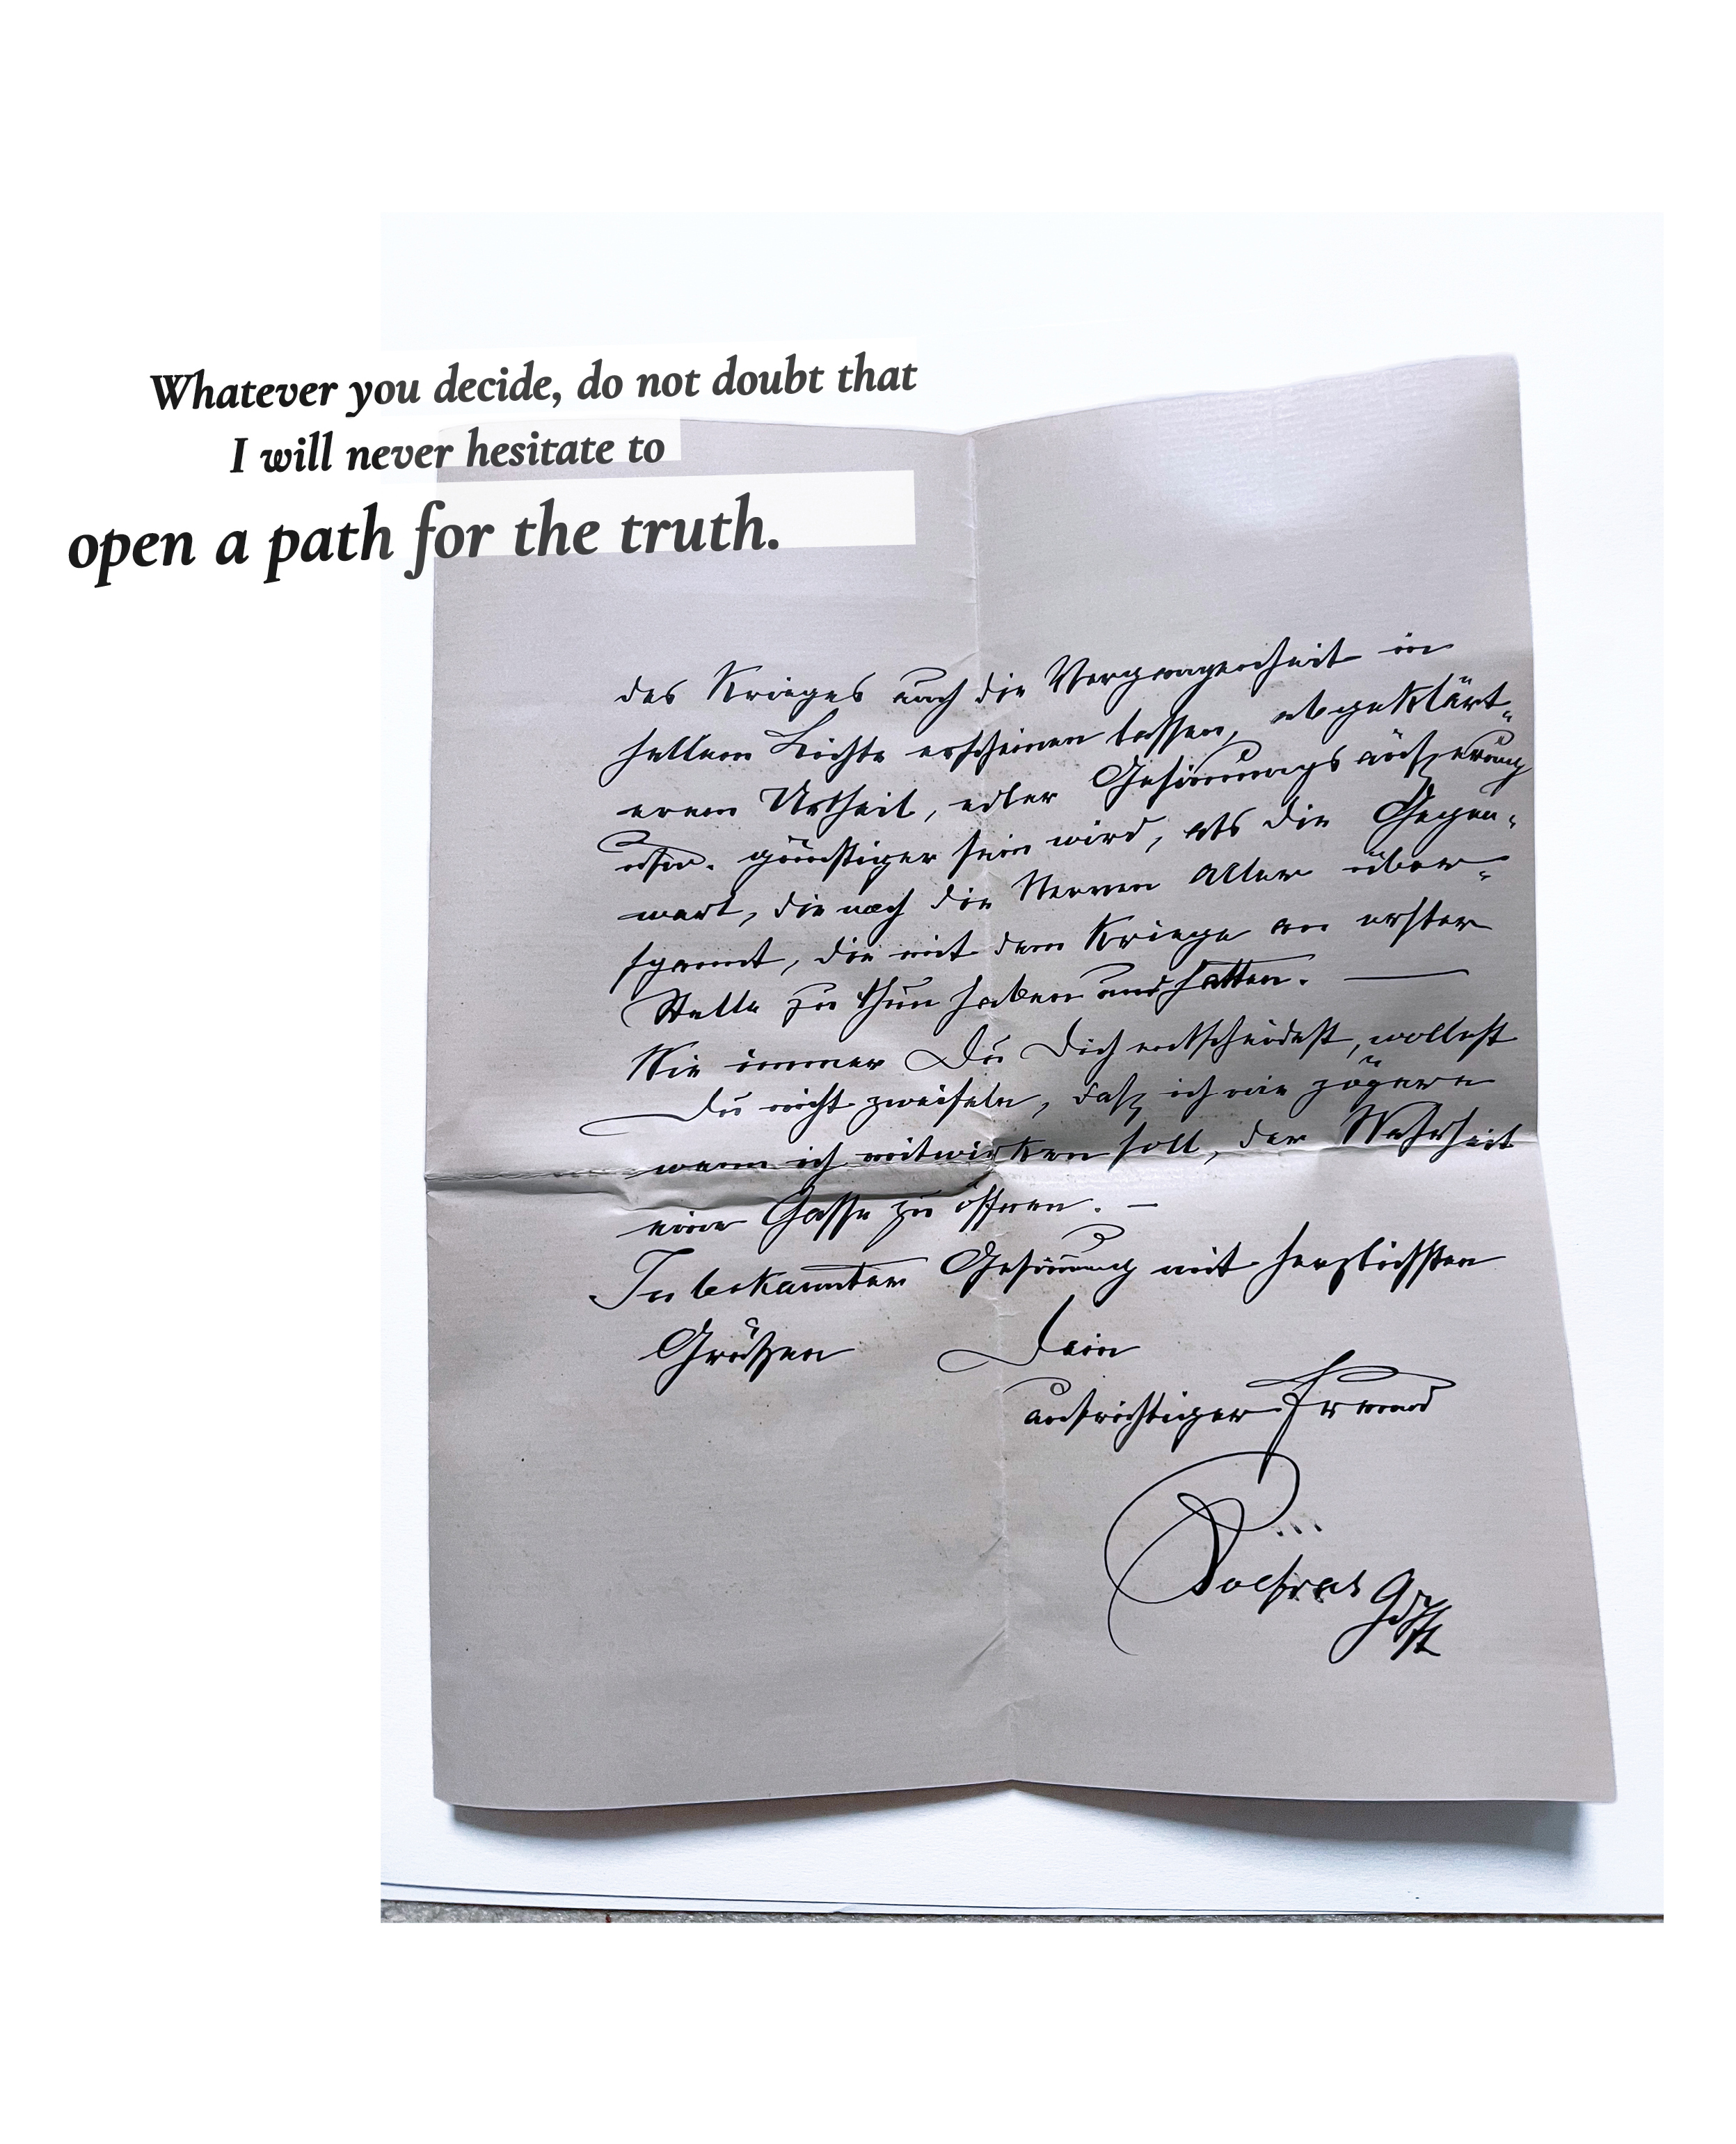 Whatever you decide, do not doubt that
I will never hesitate to
open a path for the truth.
des Krieges auch die Vergangenheit in
hellem Lichte erscheinen lassen, abgeklärt-
erem Urtheil, edler Gesinnungsäußerung
günstiger sein wird, als die Gegen-
wart, die noch die Nerven Aller über-
spannt, die mit dem Kriege an erster
Stelle zu thun haben und hatten. —
Wie immer Du Dich entscheidest, wollest
Du nicht zweifeln, daß ich nie zögere
wenn ich mitwirken soll, der Wahrheit
eine Gasse zu öffnen. —
In bekannter Gesinnung mit herzlichsten
Grüßen Dein
aufrichtiger Freund